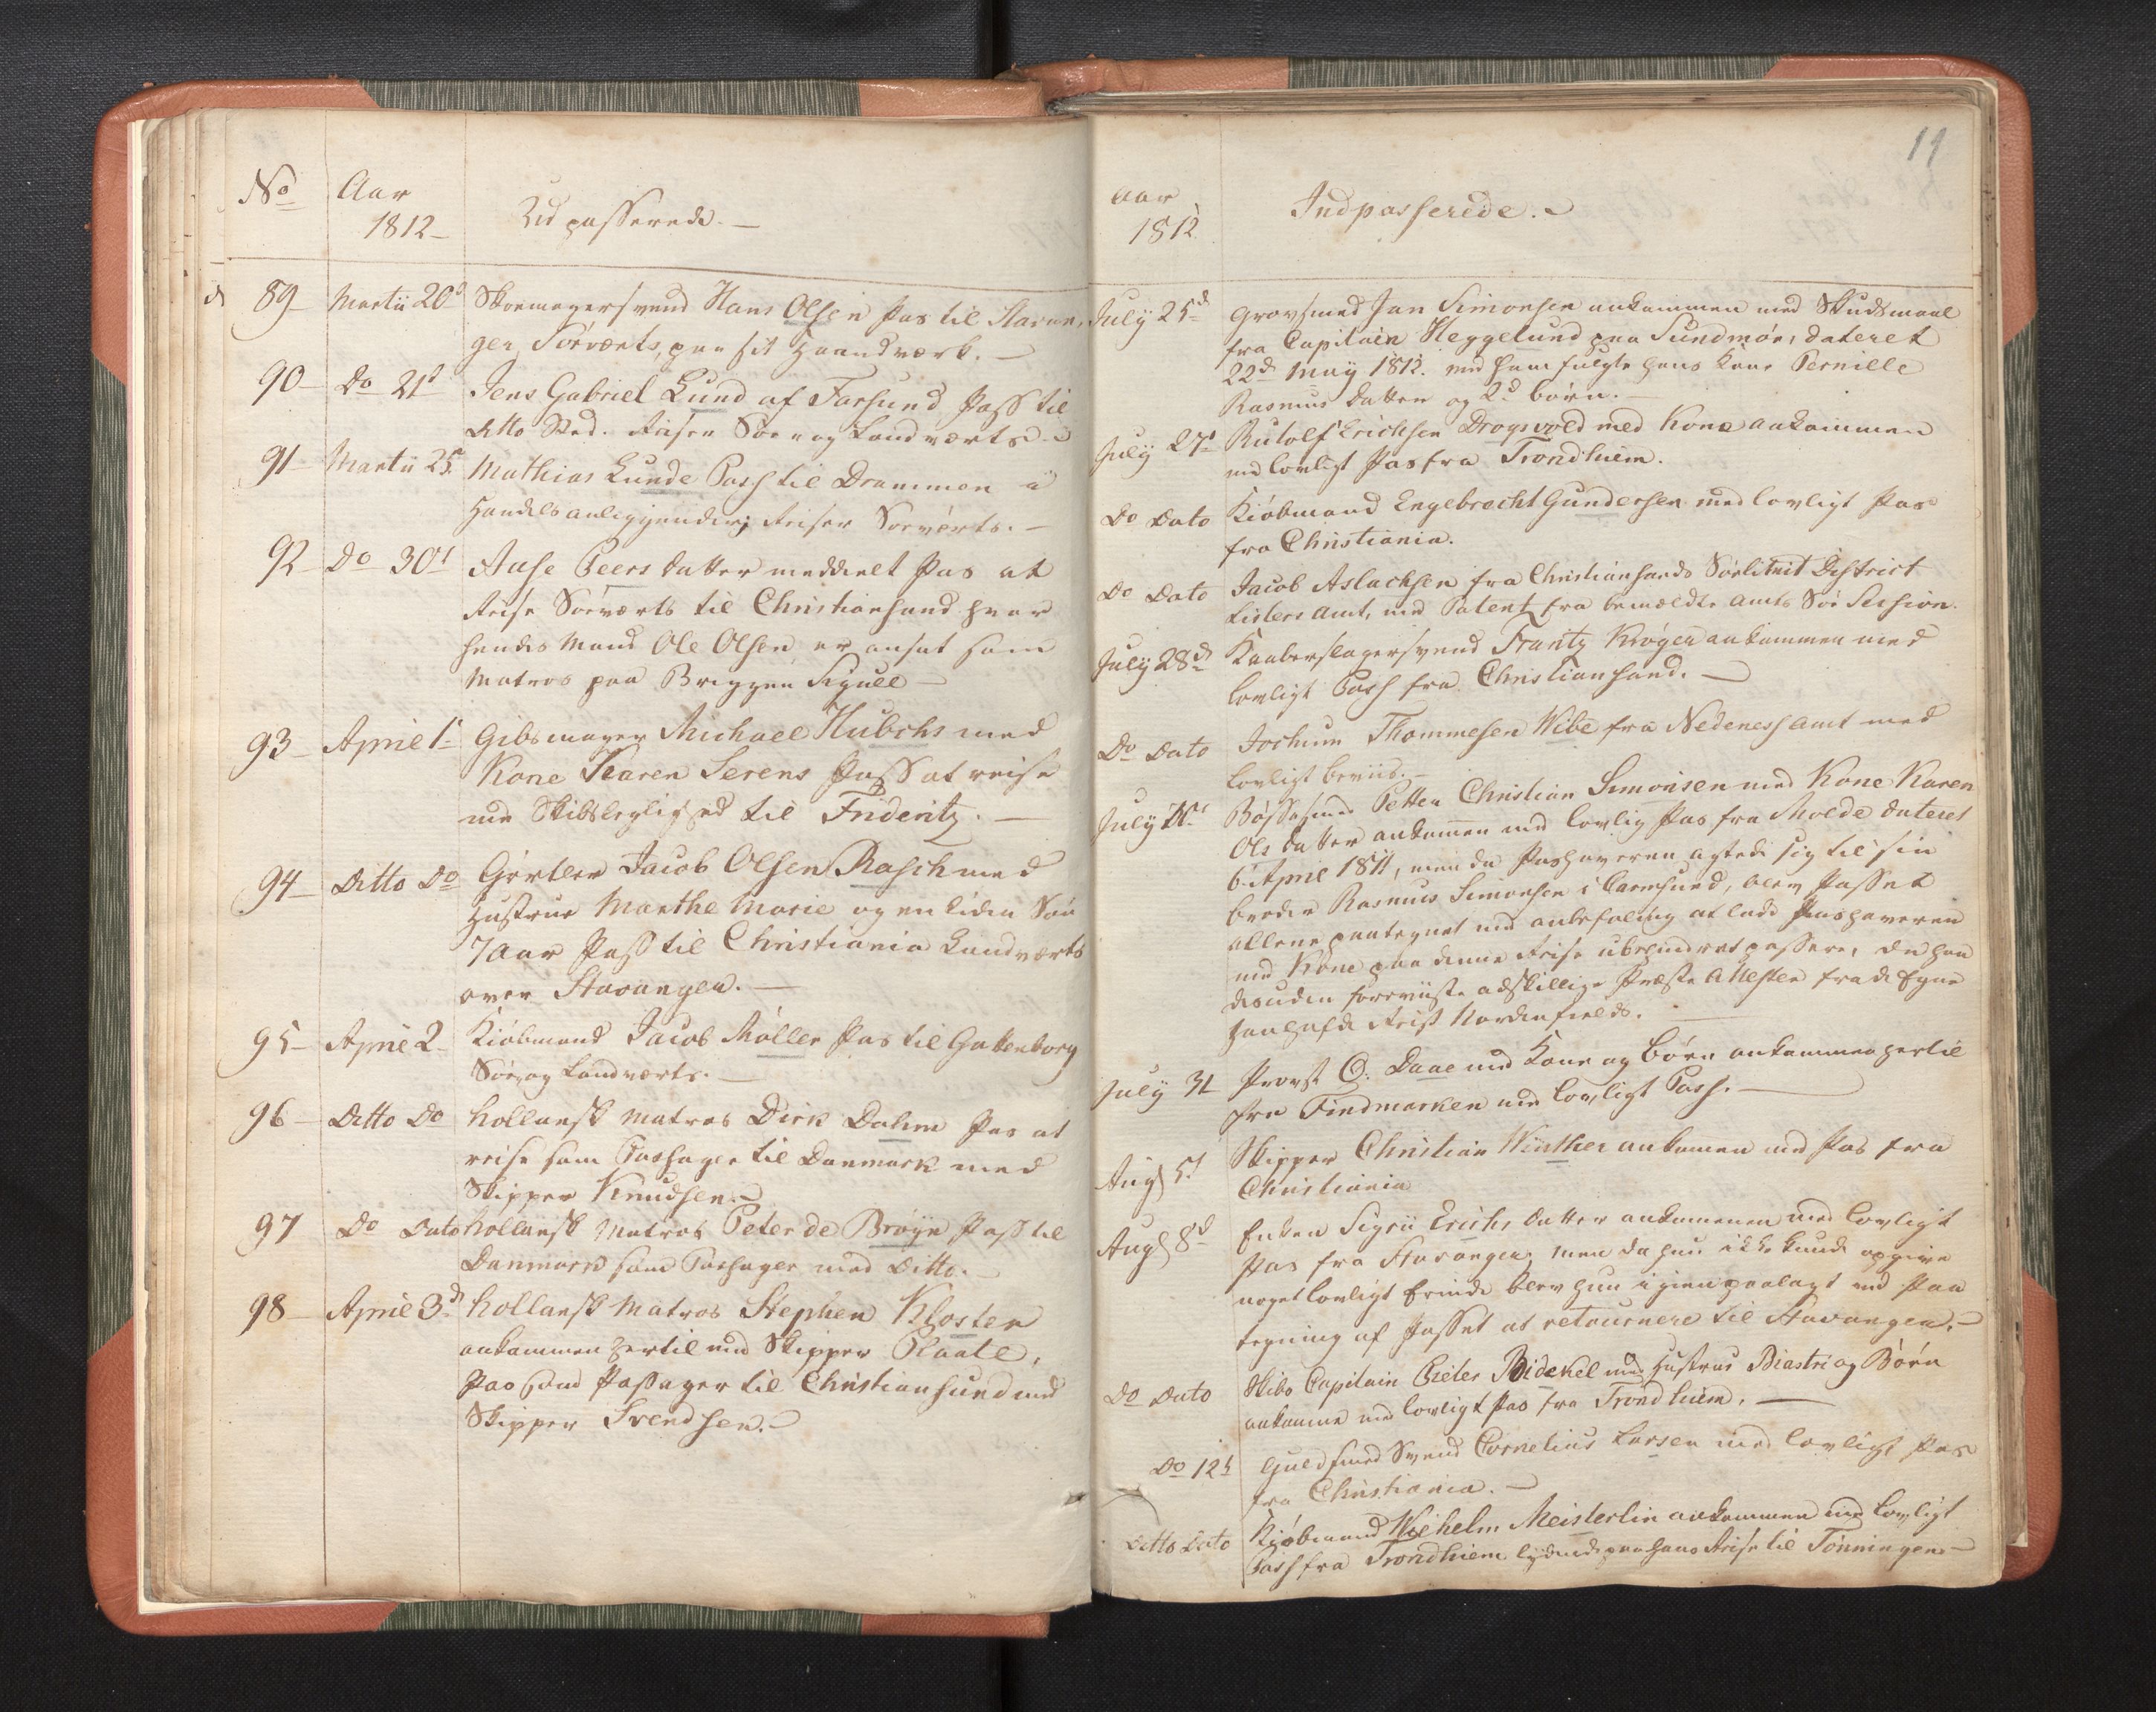 No
Aar
1812
Udpasserede.
89
Martii 20d
Skoemagersvend Hans Olsen Pas til Stavan,
ger, Söeværts, paa sit Haandværk.
90
Do 21d
Jens Gabriel Lund af Farsund Pass til
ditto Sted. Reiser Söe og Landværts.
91
Martii 25
Mathias Lunde Pass til Drammen i
Handels anliggender; Reiser Söeværts.
92
Do 30t
Aase Peersdatter meddeelt Pas at
Reise Söeværts til Christiansand hvor
hendes Mand Ole Olsen er ansat som
Matros paa Briggen Seguell
93
April 1
Gibsmager Michael Hubchs med
Kone Karen Serens Pass at reise
med Skibsleylighed til Frideritz.
94
Ditto Do
Gjörtler Jacob Olsen Rasch med
Hustrue Marthe Marie og en liden Sön
7 Aar Pass til Christiania Landværts
over Stavanger.
95
April 2
Kiöbmand Jacob Möller Pas til Gottenborg
Söe og Landværts.
96
Ditto Do
Hollansk Matros Dirk Dahm Pas at
reise som Passager til Danmark med
Skipper Knudsen.
97
Do Dato
Hollansk Matros Peter de Bröyn Pass til
Danmark som Passager med Ditto.
98
April 3d
Hollansk Matros Stephen Kloster
ankommen hertil med Skipper Plaate,
Pas som Passager til Christiansund med
Skipper Svendsen.
11
Aar
1812
Indpasserede.
July 25d
Grovsmed Jan Simonsen ankommen med Skudsmaal
fra Capitain Heggelund paa Sundmör, dateret
22d May 1812. med ham fulgte hans Kone Pernille
Rasmus Datter og 2d börn.
July 27d
Rutolf Erichsen Dragsvold med Kone ankommen
med lovligt Pas fra Trondhiem.
Do Dato
Kiöbmand Engebrecht Gundersen med lovligt Pas
fra Christiania.
Do Dato
Jacob Aslachsen fra Christiansands Söelimit District
Listers Amt, med Patent fra bemældte Amts Söe Session.
July 28d
Kaaberslagersvend Frantz Kröger ankommen med
lovligt Pass fra Christiansand.
Do Dato
Jochum Thommesen Wibe fra Nedeness Amt med
lovligt beviis.
July
Bössesmed Petter Christian Simonsen med Kone Karen
Ols Datter ankommen med lovlig Pas fra Molde dateret
6 April 1811, men da Pashaveren agtede sig til sin
broder Rasmus Simonsen i Carmsund, blev Passet
allene paategnet med anbefaling at lade Pashaveren
med Kone paa denne Reise ubehindret passere, da han
desuden foreviiste adskillige Præste Attester fra de Egne
han hafde Reist Nordenfields.
July 31
Provst O: Daae med Kone og Börn ankommen hertil
fra Findmarken med lovligt Pass.
Aug 5t
Skipper Christian Winther ankommen med Pas fra
Christiania
Aug 8d
Enken Sigrii Erichs Datter ankommen med lovligt
Pas fra Stavanger, men da hun ikke kunde opgive
noget lovligt Erinde blev hun igien paalagt ved Paa
tegning af Passet at retournere til Stavanger.
Do Dato
Skibs Capitain Peter Bidekel med Hustrue Biastri og Börn
ankomne med lovligt Pas fra Trondhiem.
Do 12t
Guldsmed Svend Cornelius Larsen med lovligt Pas
fra Christiania.
Ditto Dato
Kiöbmand Wilhelm Meisterlin ankommen med lovligt
Pass fra Trondhiem lydende paa hans Reise til Tönningen